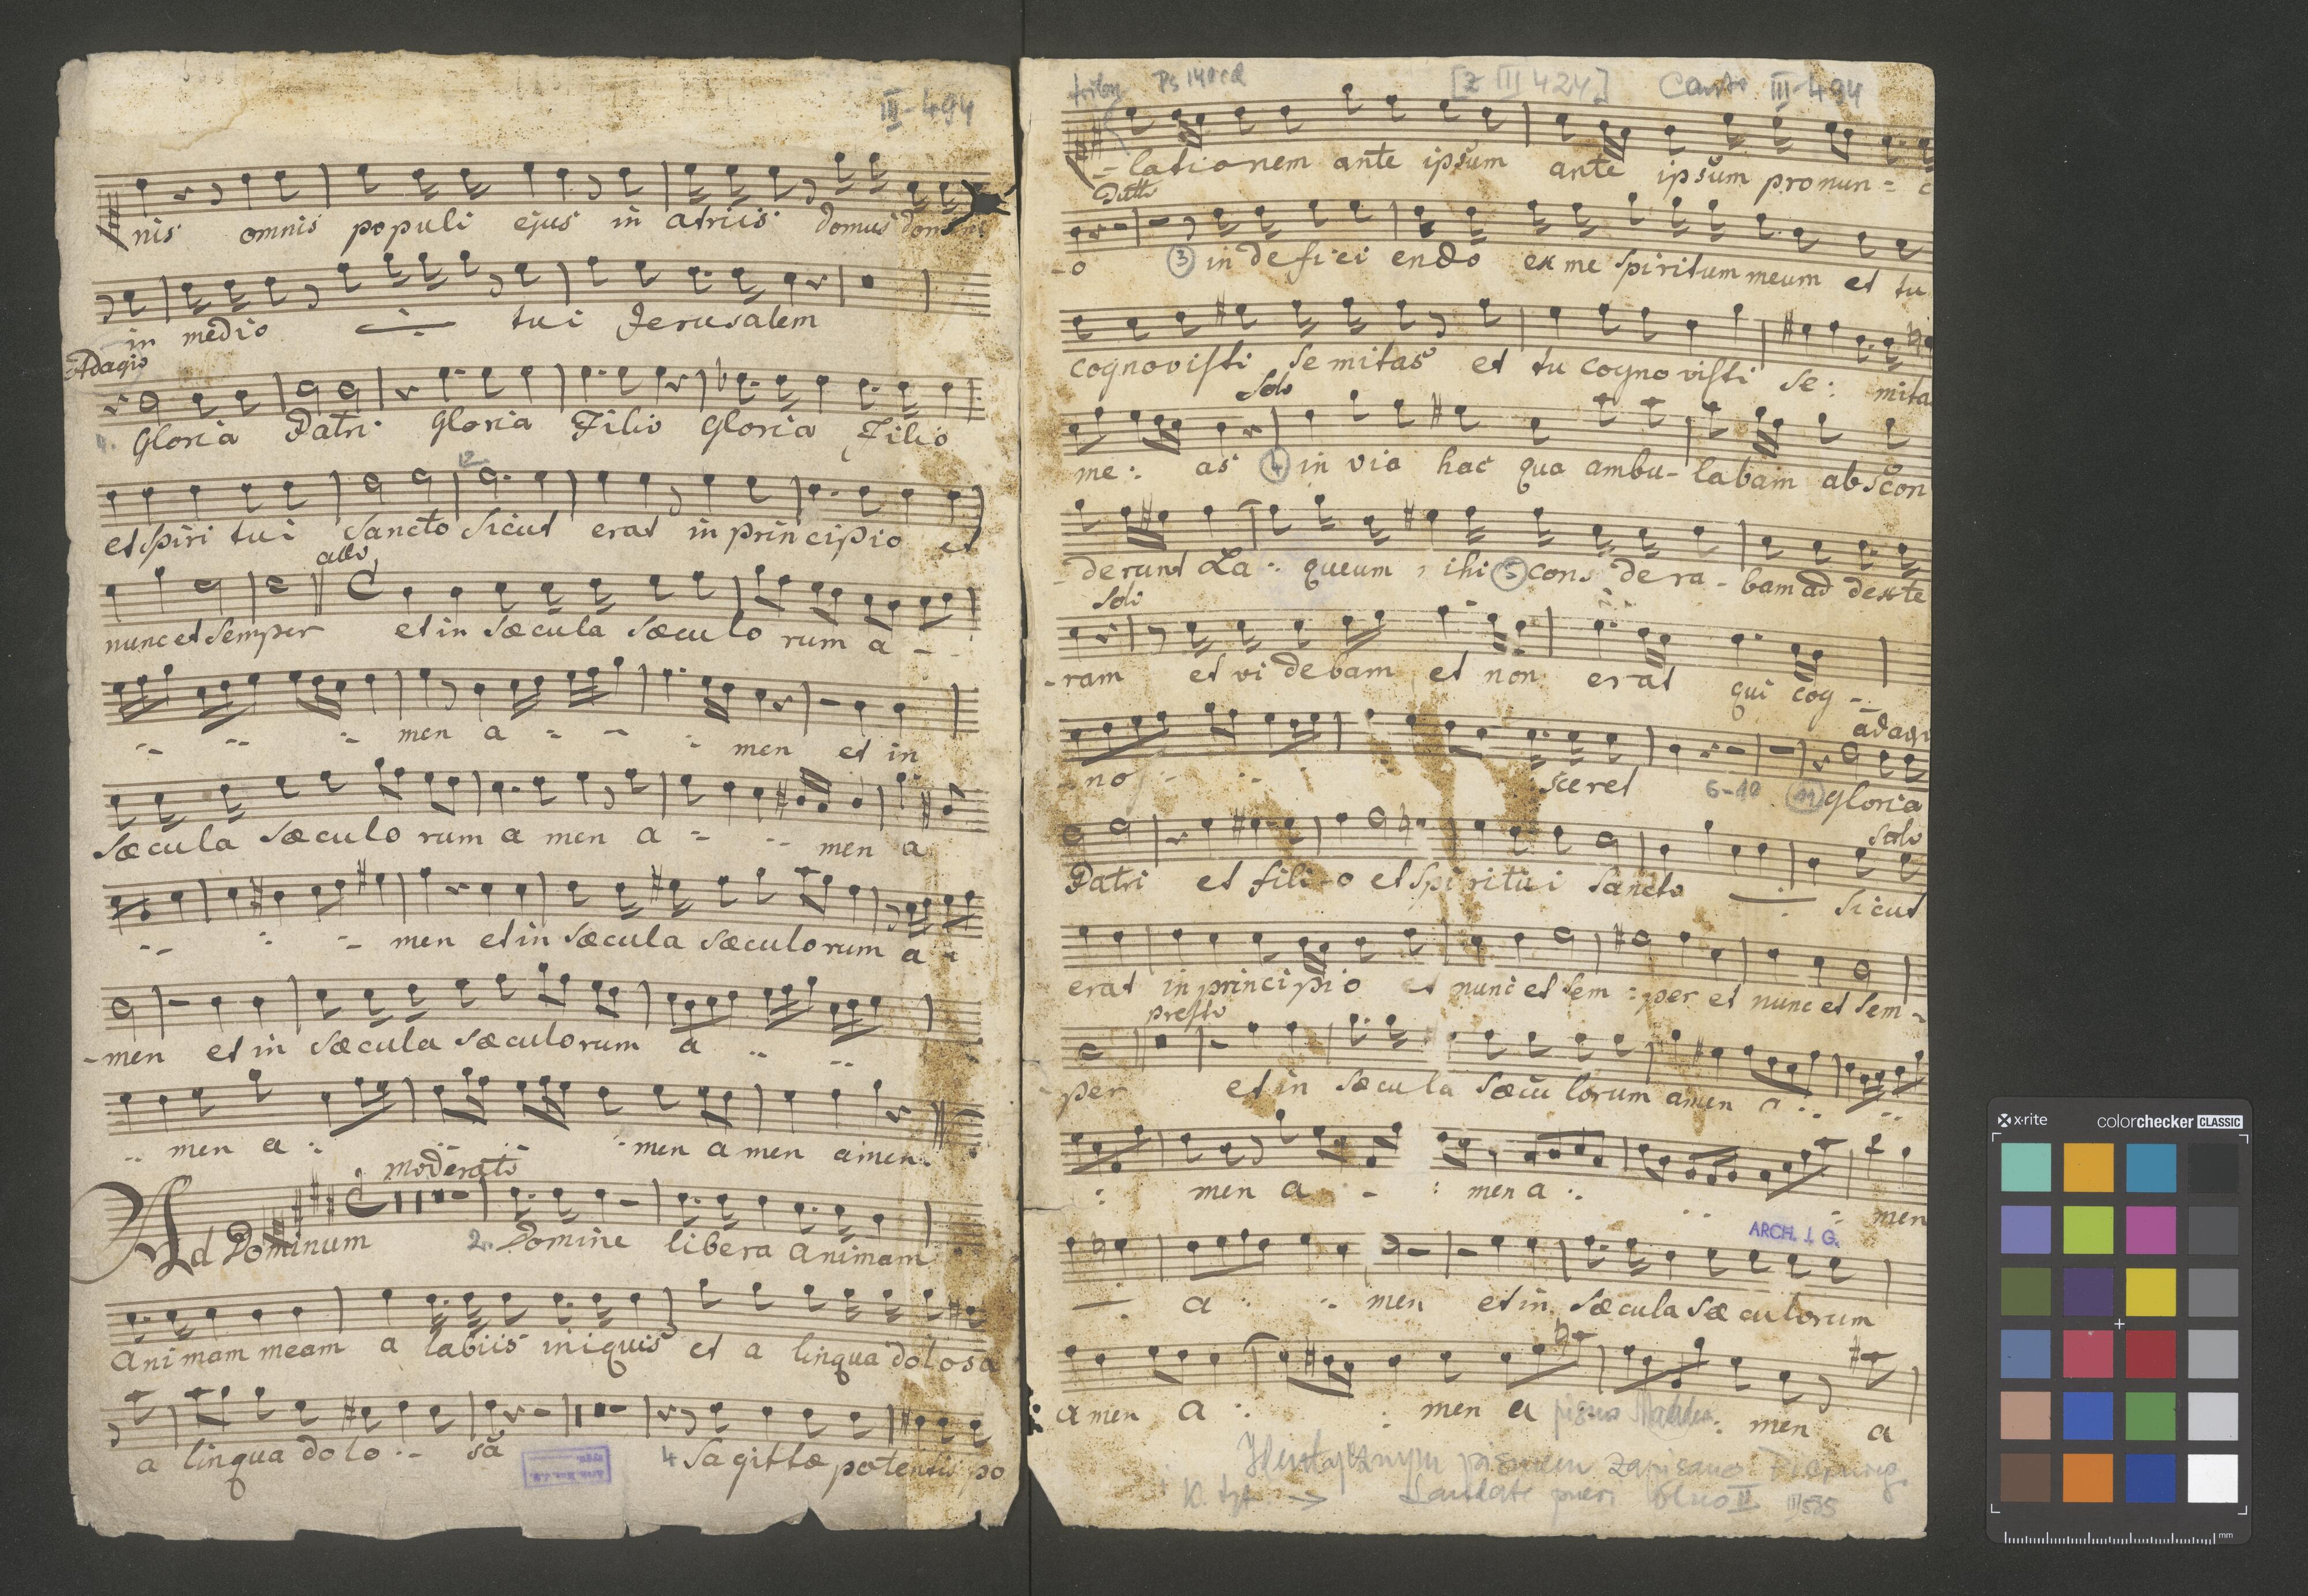 III-494
nis omnis populi ejus in atriis domus
in medio tui Jerusalem
Adagio
4. Gloria Patri Gloria Filio Gloria Filio
12
et Spiri tui Sancto Sicut erat in principio et
allo
nunc et Semper et in Sæcula Sæculo rum a -
men a - - - men et in
Sæcula Sæculo rum a men a = -- men a
-- : -- men et in Sæcula Sæculorum a -
-men et in Sæcula Sæculorum a .. --
.. men a : .. -men a men amen.
moderato
Ad Dominum 2. Domine libera animam
animam meam a labiis iniquis et a lingua dolosa
a lingua dolo .- sa 4 Sagittæ potentis po
Ps 140 [z III 424] Canto III-494
- lationem ante ipsum ante ipsum pronun =
Tutti
-o 3 in defici endo ex me Spiritum meum et tu
cognovisti Semitas et tu cognovisti Se: mita
Solo
me: as 4 in via hac qua ambu- labam abscon
-derunt La : queum ihi 5 cons dera - bam ad dexte
Soli
-ram et videbam et non erat qui cog --
adagi
- no sceret 6-10 11 Gloria
Solo
Patri et fili-o et Spiritui Sancto Sicut
erat in principio et nunc et Sem : per et nunc et Sem -
presto
-per et in Sæcula Sæcu lorum amen a ..
: men a - : men a :. .. : men
ARCH. J. G.
a : .. men et in Sæcula Sæculorum
amen a : : men a : men a
pismo
Identycznym pismem zapisano
Laudate pueri II III 535
x·rite colorchecker CLASSIC
mm